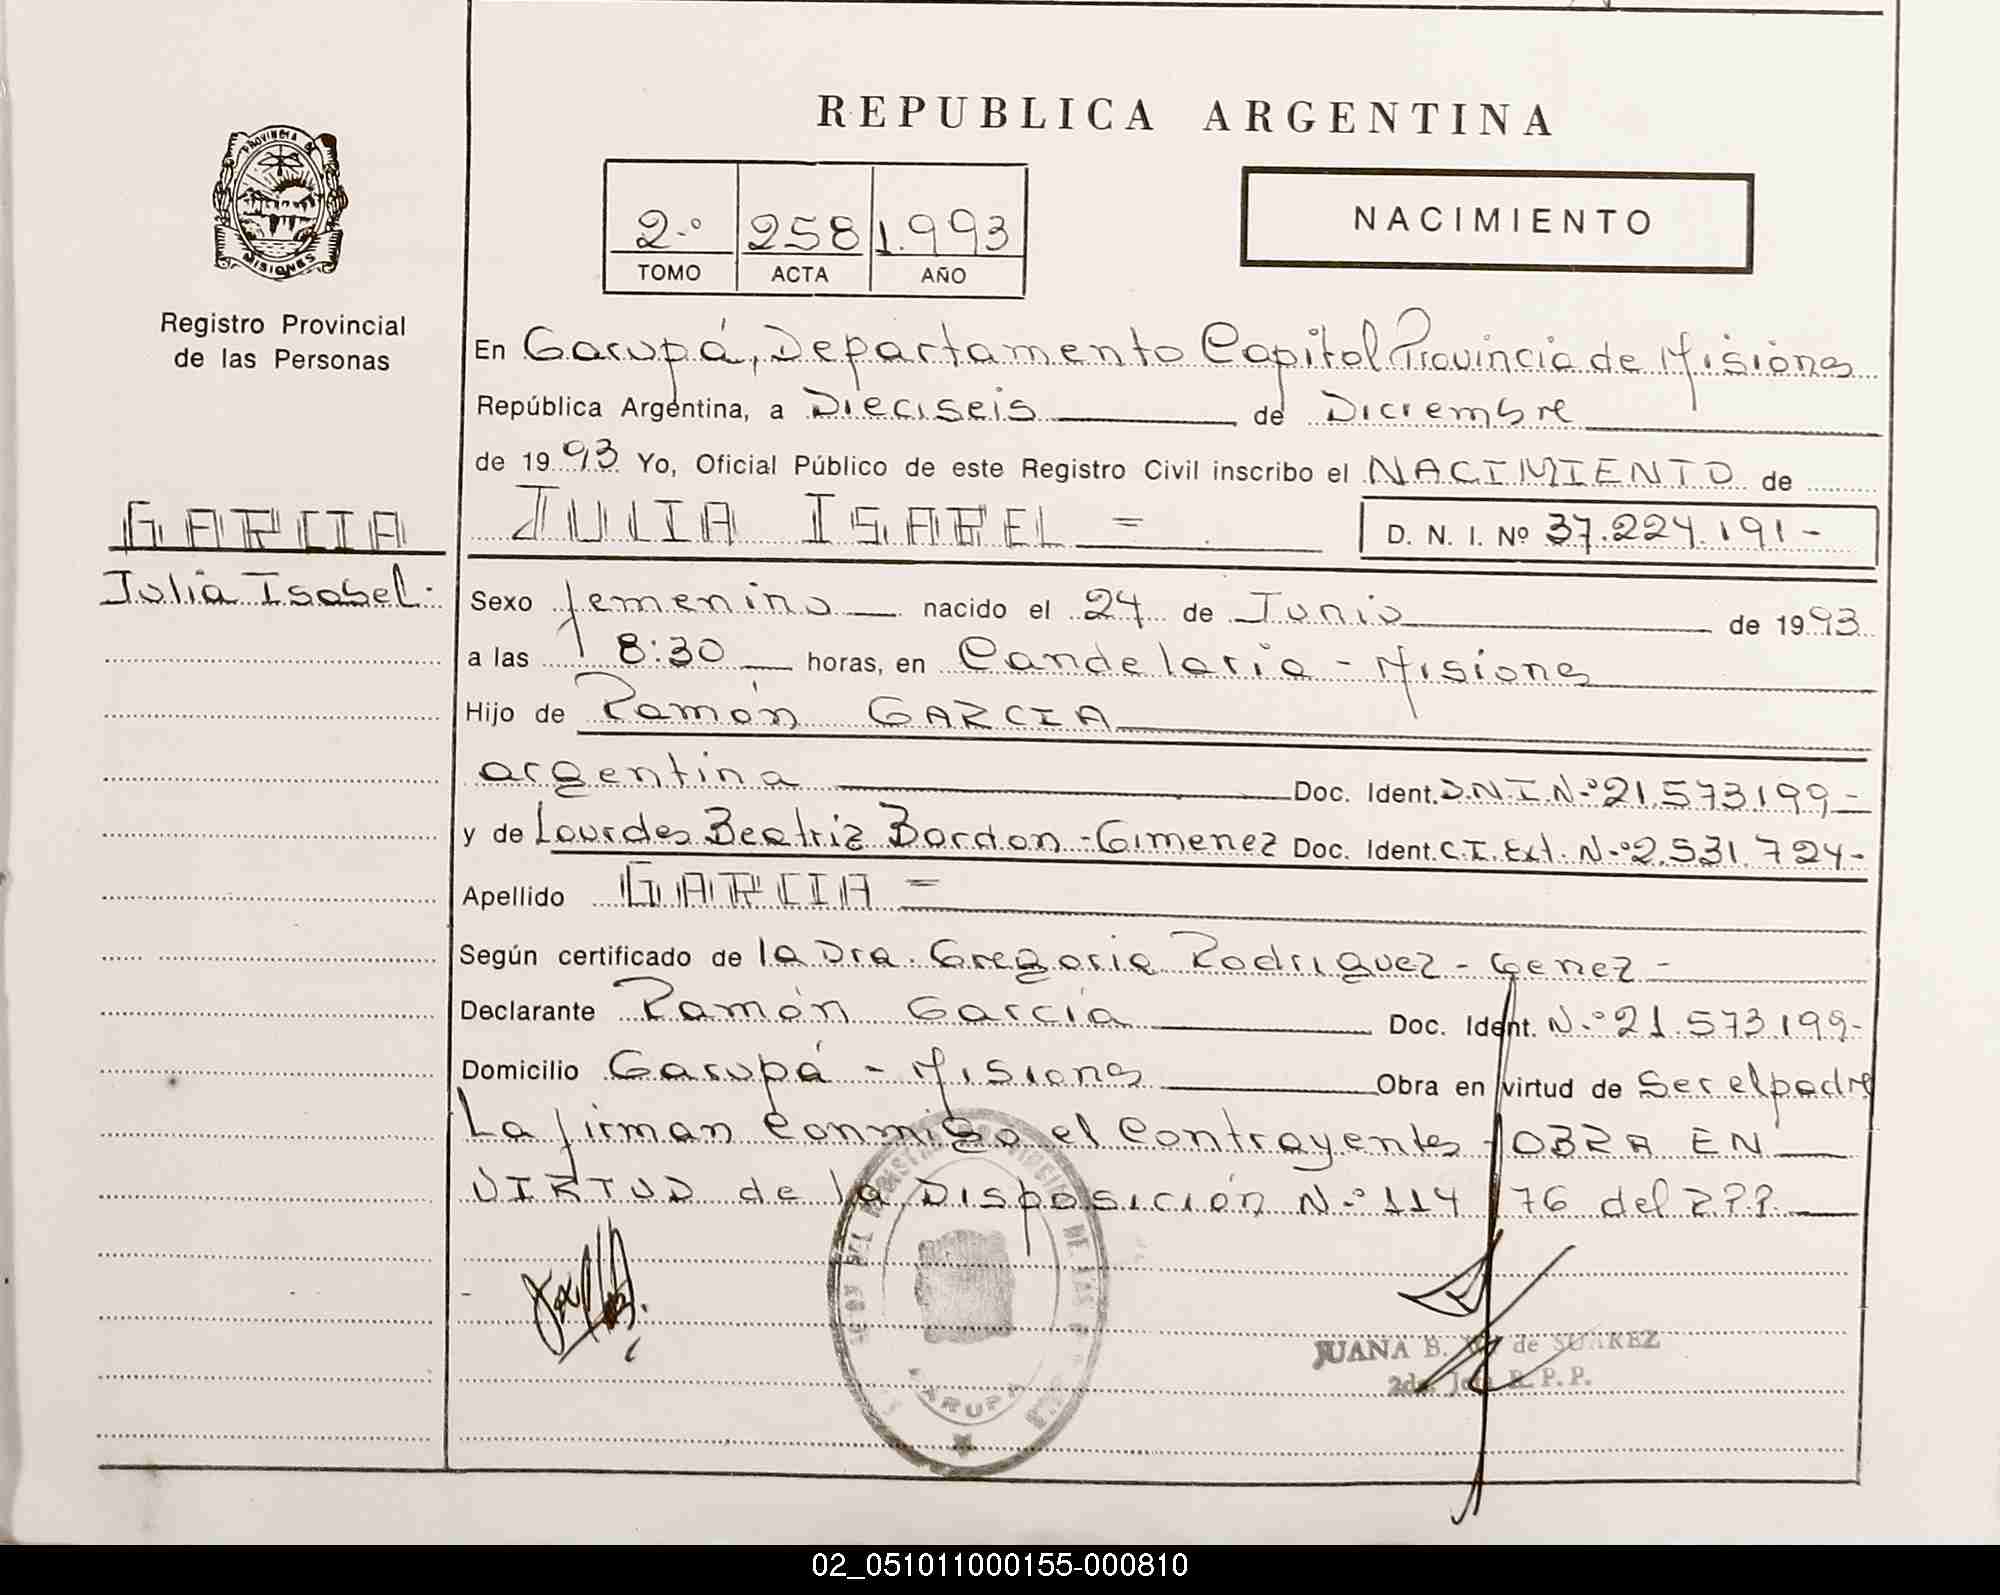 REPUBLICA ARGENTINA
PROVINCIA DE
MISIONES
Registro Provincial
de las Personas
2.º 258 1.993
TOMO ACTA AÑO
NACIMIENTO
En Garupá, Departamento Capital Provincia de Misiones
República Argentina, a Dieciseis de Diciembre
de 1993 Yo, Oficial Público de este Registro Civil inscribo el NACIMIENTO de
GARCIA
Julia Isabel.
JULIA ISABEL = D. N. I. Nº 37.224.191-
Sexo femenino nacido el 24 de Junio de 1993
a las 8:30 horas, en Candelaria - Misiones
Hijo de Ramón GARCIA
argentina Doc. Ident. D.N.I.N.º 21.573.199-
y de Lourdes Beatriz Bordon - Gimenez Doc. Ident. C.I. Ext. N.º 2.531.724-
Apellido GARCIA =
Según certificado de la Dra. Gregoria Rodriguez - Genez -
Declarante Ramón García Doc. Ident. N.º 21.573.199-
Domicilio Garupá - Misiones Obra en virtud de Ser el padre
La firman conmigo el contrayentes - OBRA EN
VIRTUD de la Disposición N.º 114 76 del R.P.P.
GARUPA
JUANA B. de SUAREZ
R.P.P.
02_051011000155-000810